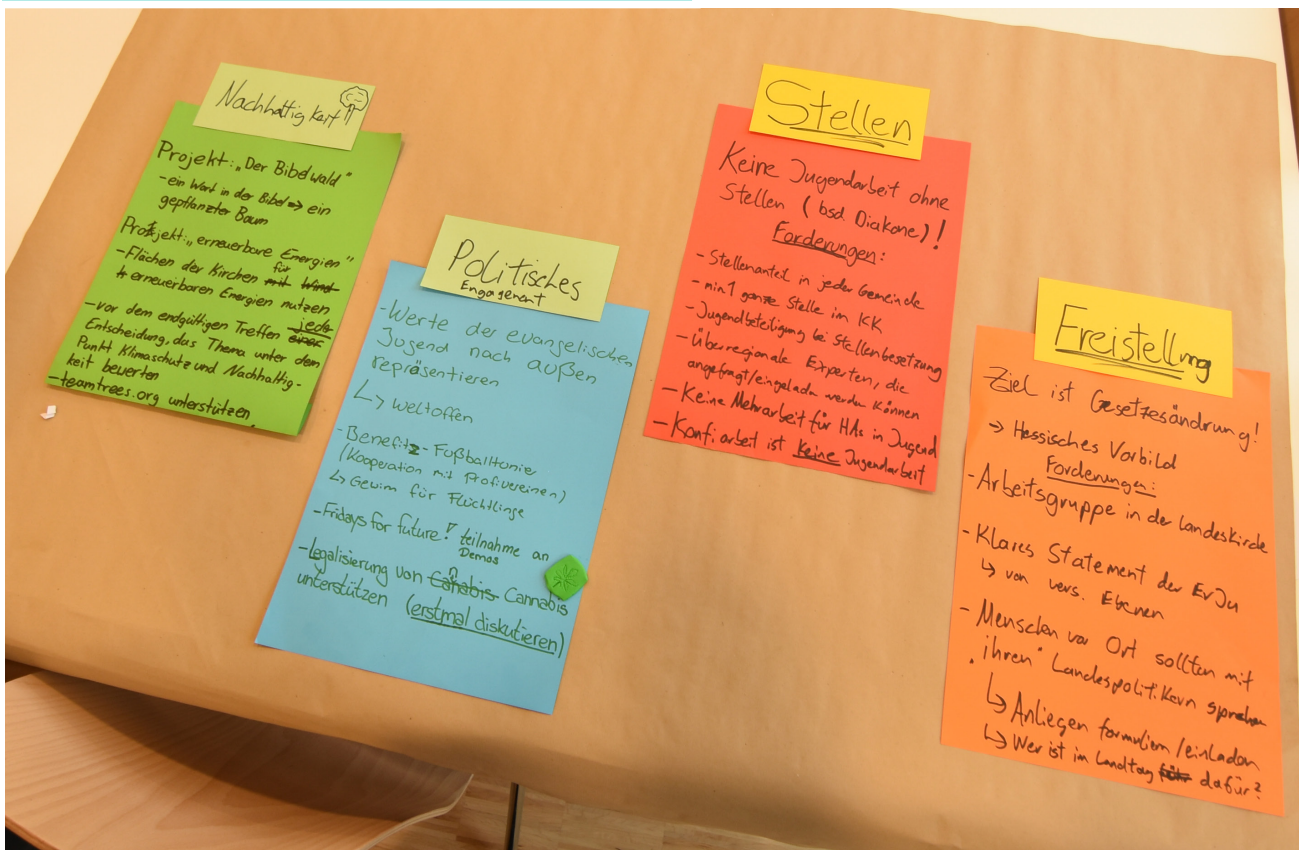 Nachhaltigkeit
Projekt: „Der Bibelwald"
- ein Wort in der Bibel => ein
gepflanzter Baum
Projekt: „erneuerbare Energien"
- Flächen der Kirchen mit Wind für
erneuerbaren Energien nutzen
- vor dem endgültigen Treffen einer jede
Entscheidung, das Thema unter dem
Punkt Klimaschutz und Nachhaltig-
keit bewerten
- teamtrees.org unterstützen
Politisches
Engagement
- Werte der evangelischen
Jugend nach außen
repräsentieren
↳ weltoffen
- Benefitz - Fußballtunier
(Kooperation mit Profivereinen)
↳ Gewinn für Flüchtlinge
- Fridays for future! teilnahme an
Demos
- Legalisierung von Canabis Cannabis
unterstützen (erstmal diskutieren)
Stellen
Keine Jugendarbeit ohne
Stellen (bsd. Diakone)!
Forderungen:
- Stellenanteil in jeder Gemeinde
- min. 1 ganze Stelle im KK
- Jugendbeteiligung bei Stellenbesetzung
- Überregionale Experten, die
angefragt/eingeladen werden können
- Keine Mehrarbeit für HAs in Jugend
- Konfiarbeit ist Keine Jugendarbeit
Freistellung
Ziel ist Gesetzesändrung!
→ Hessisches Vorbild
Forderungen:
- Arbeitsgruppe in der Landeskirche
- Klares Statement der EvJu
↳ von vers. Ebenen
- Menschen vor Ort sollten mit
„ihren" Landespolitikern sprechen
↳ Anliegen formuliern/einladen
↳ Wer ist im Landtag für dafür?